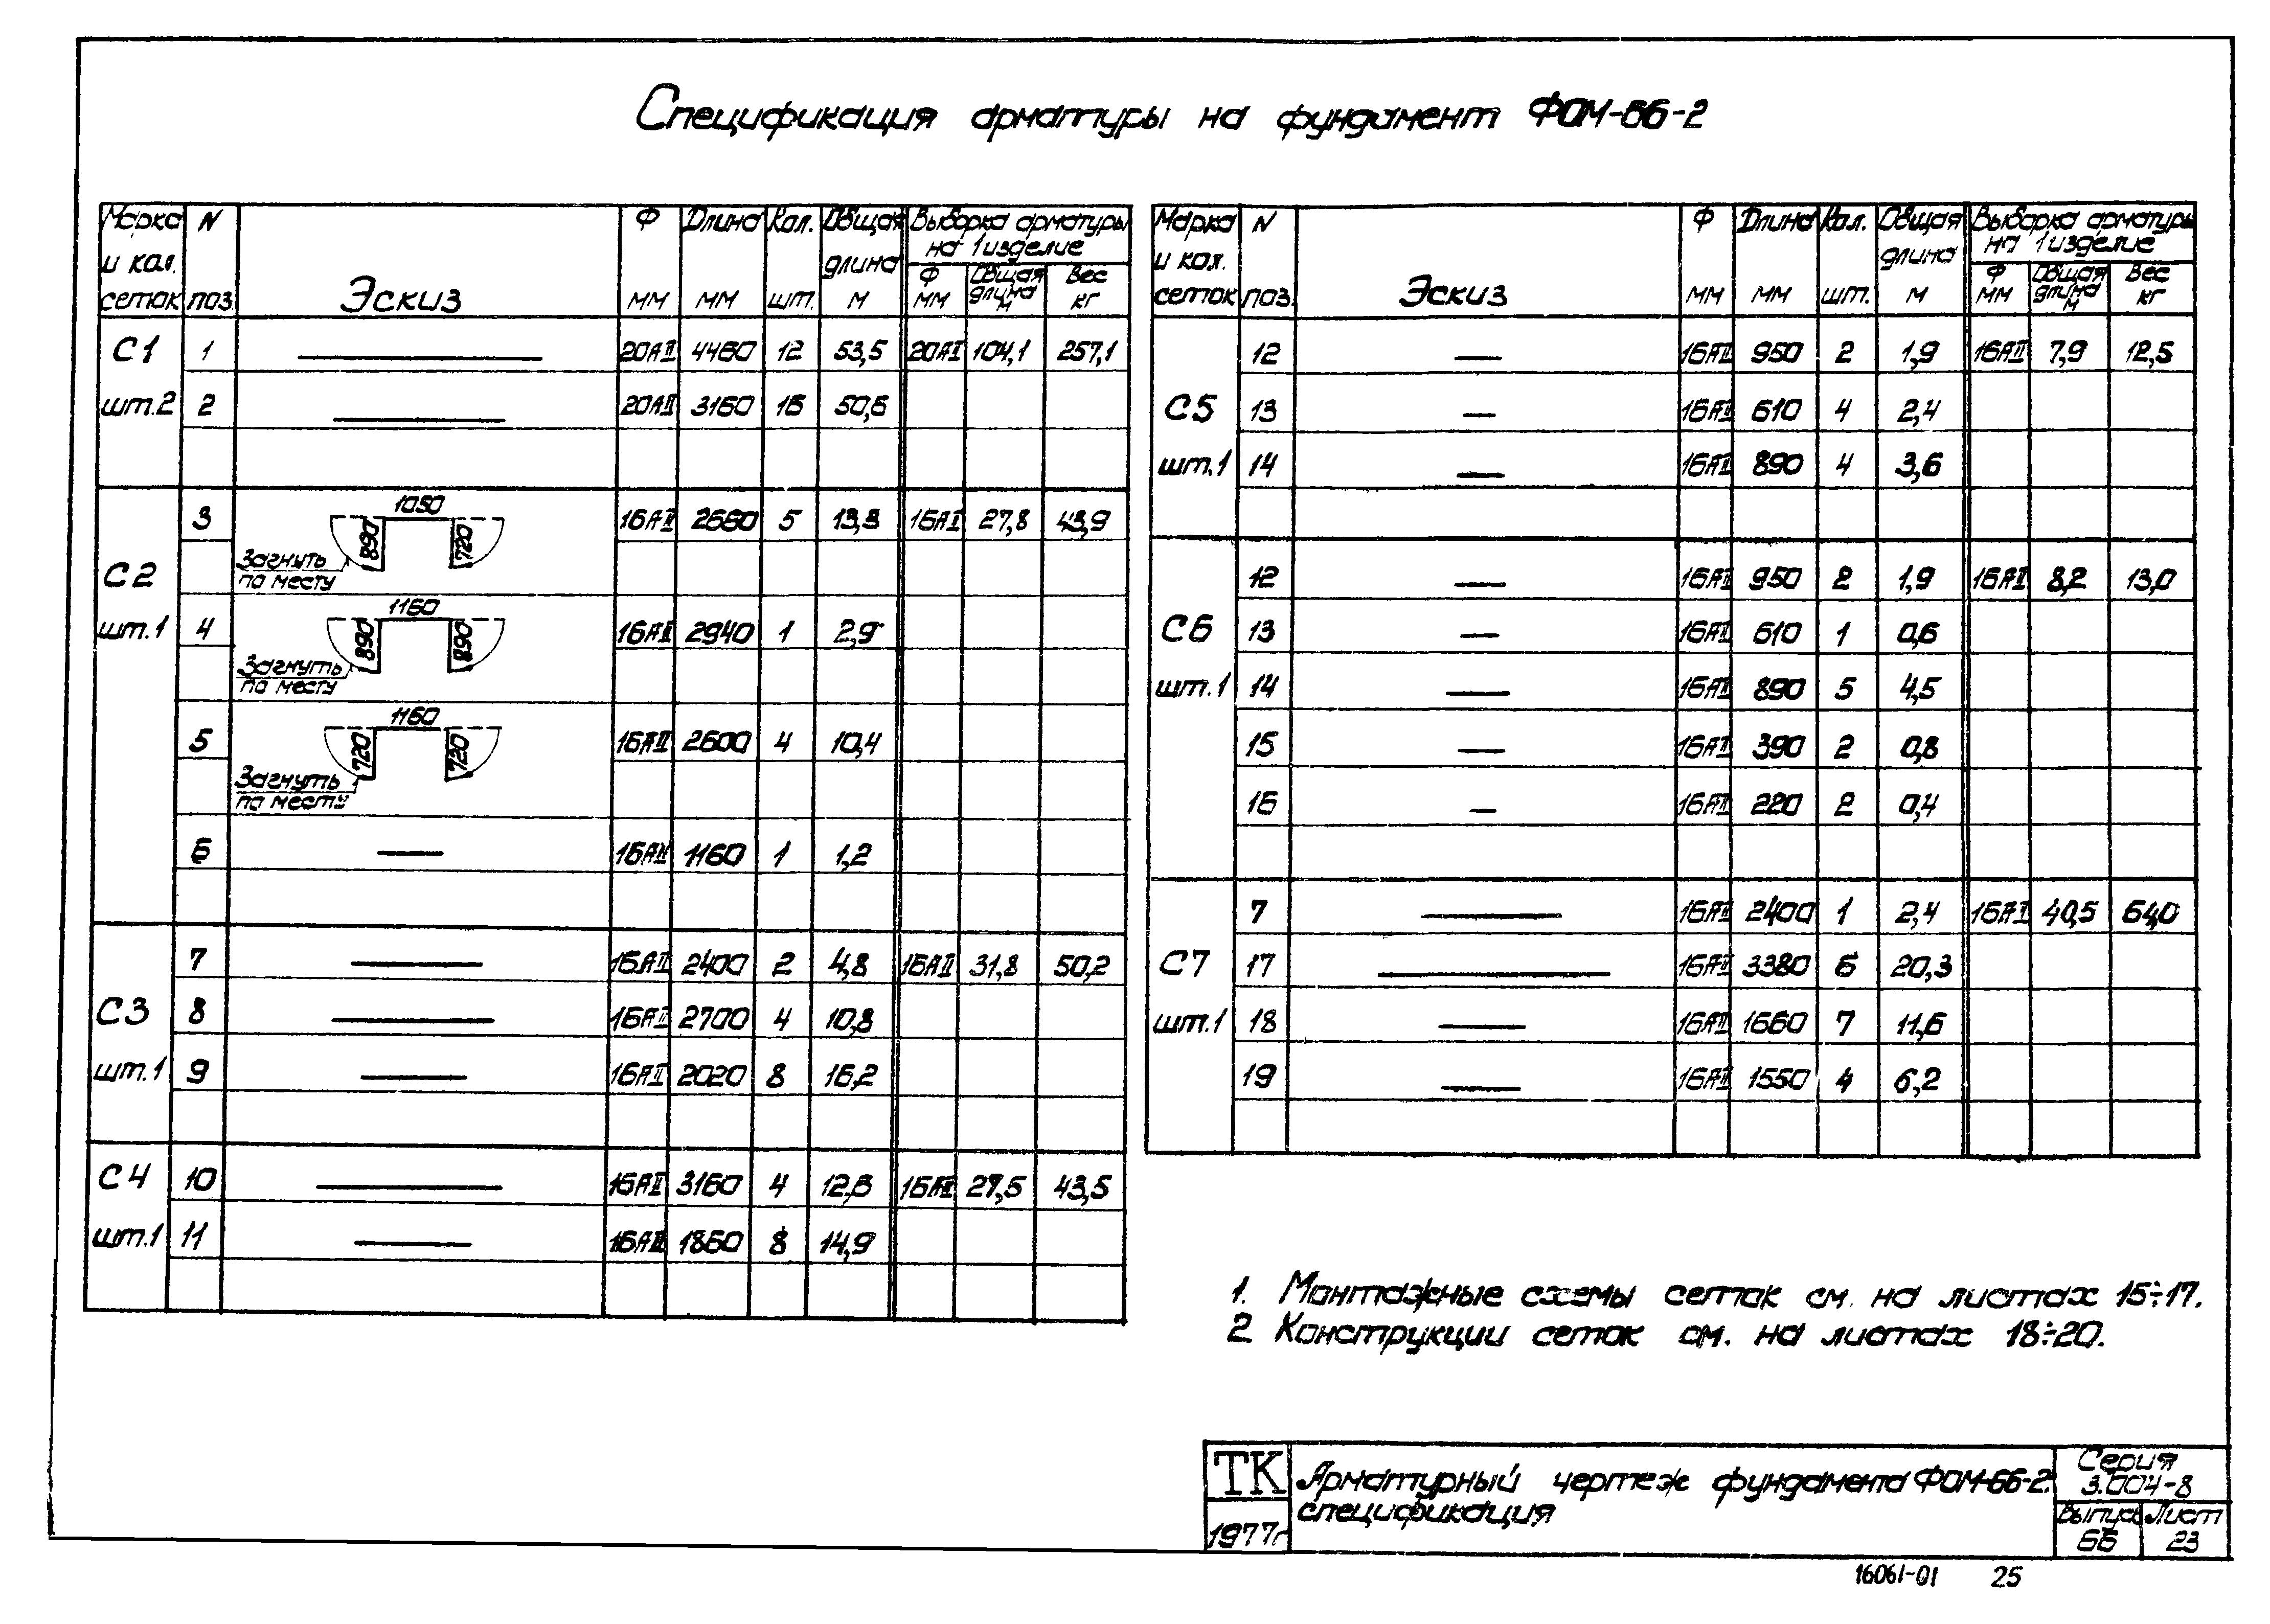 Спецификация арматуры на фундамент ФОМ-66-2
Марка и кол. сеток | N поз. | Эскиз | Ф мм | Длина мм | Кол. шт. | Общая длина м | Выборка арматуры на 1 изделие: Ф мм | Общая длина м | Вес кг
С1 шт.2 | 1 | 20АII | 4460 | 12 | 53,5 | 20АII | 104,1 | 257,1
2 | 20АII | 3160 | 16 | 50,6
С2 шт.1 | 3 | 1050 890 720 Загнуть по месту | 16АII | 2660 | 5 | 13,3 | 16АII | 27,8 | 43,9
4 | 1160 890 890 Загнуть по месту | 16АII | 2940 | 1 | 2,9
5 | 1160 720 720 Загнуть по месту | 16АII | 2600 | 4 | 10,4
6 | 16АII | 1160 | 1 | 1,2
С3 шт.1 | 7 | 16АII | 2400 | 2 | 4,8 | 16АII | 31,8 | 50,2
8 | 16АII | 2700 | 4 | 10,8
9 | 16АII | 2020 | 8 | 16,2
С4 шт.1 | 10 | 16АII | 3160 | 4 | 12,6 | 16АII | 27,5 | 43,5
11 | 16АII | 1860 | 8 | 14,9
Марка и кол. сеток | N поз. | Эскиз | Ф мм | Длина мм | Кол. шт. | Общая длина м | Выборка арматуры на 1 изделие: Ф мм | Общая длина м | Вес кг
С5 шт.1 | 12 | 16АII | 950 | 2 | 1,9 | 16АII | 7,9 | 12,5
13 | 16АII | 610 | 4 | 2,4
14 | 16АII | 890 | 4 | 3,6
С6 шт.1 | 12 | 16АII | 950 | 2 | 1,9 | 16АII | 8,2 | 13,0
13 | 16АII | 610 | 1 | 0,6
14 | 16АII | 890 | 5 | 4,5
15 | 16АII | 390 | 2 | 0,8
16 | 16АII | 220 | 2 | 0,4
С7 шт.1 | 7 | 16АII | 2400 | 1 | 2,4 | 16АII | 40,5 | 64,0
17 | 16АII | 3380 | 6 | 20,3
18 | 16АII | 1660 | 7 | 11,6
19 | 16АII | 1550 | 4 | 6,2
1. Монтажные схемы сеток см. на листах 15÷17.
2 Конструкции сеток см. на листах 18÷20.
ТК
1977г
Арматурный чертеж фундамента ФОМ-66-2.
спецификация
Серия
3.004-8
Выпуск Лист
6Б 23
16061-01 25